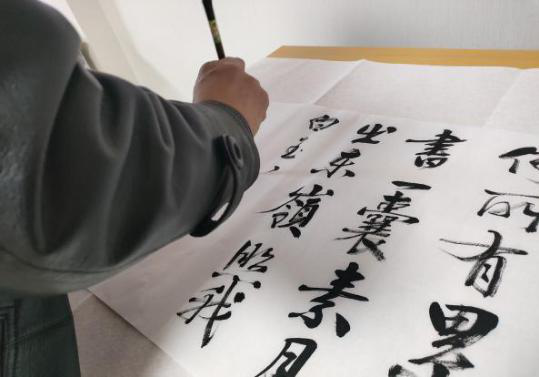 何所有累
書一囊素月
出東嶺照我
白玉